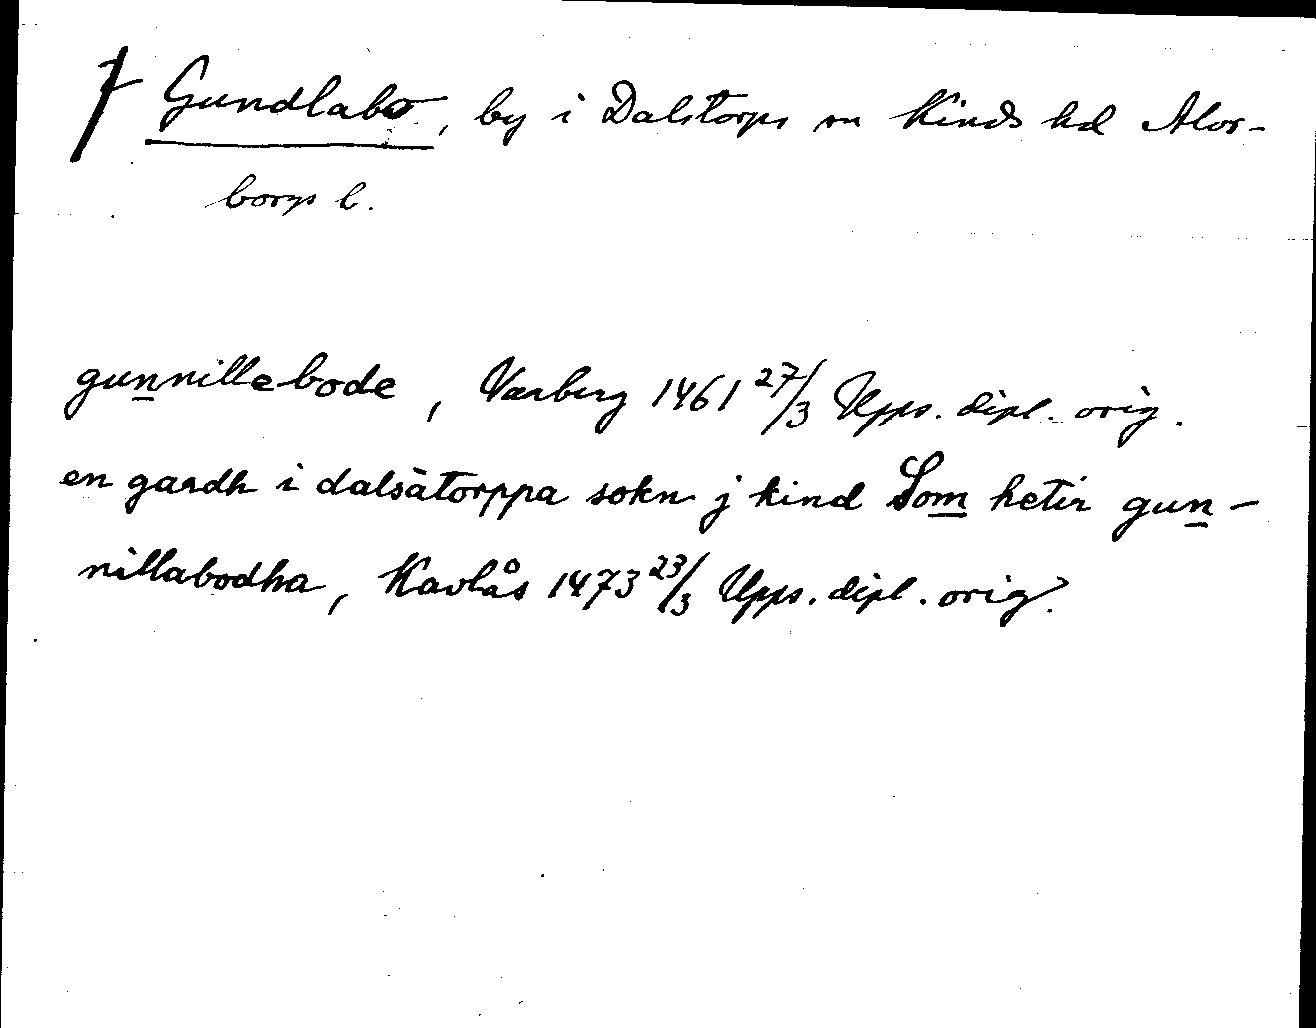 † Gundlabo, by i Dalstorps sn Kinds hd Älvs-
borgs l.
gunnillebode, Varberg 1461 27/3 Upps. dipl. orig.
en gardh i dalsätorppa sokn j kind Som hetir gun-
nillabodha, Kavlås 1473 23/3 Upps. dipl. orig.